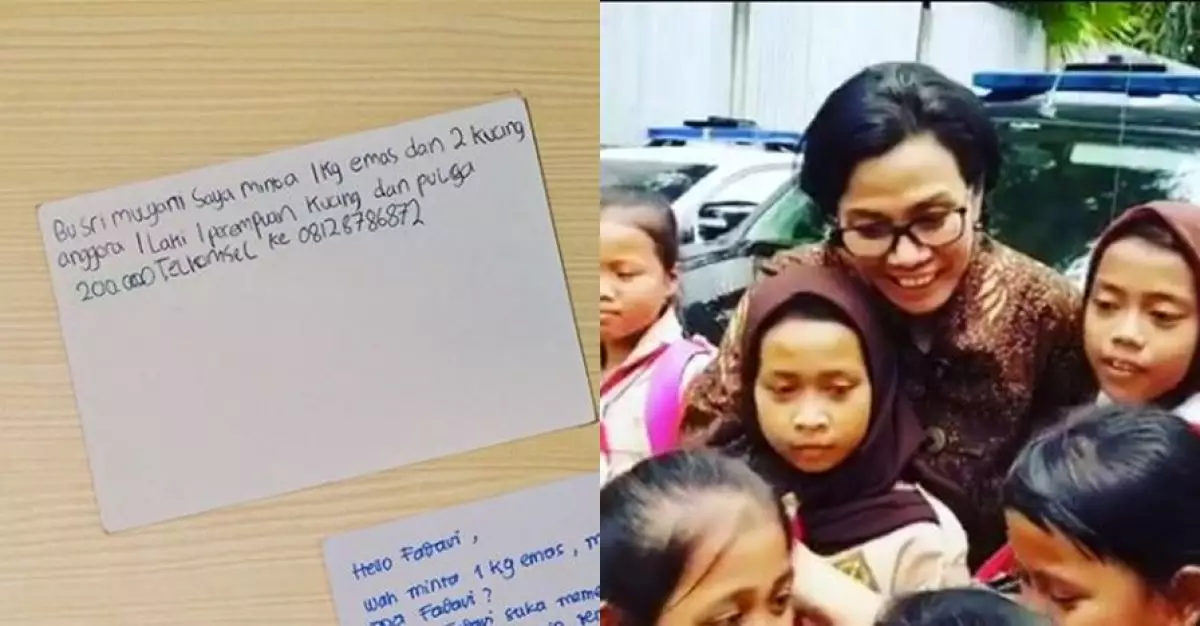 Bu Sri mulyani Saya minta 1 kg emas dan 2 kucing
anggora 1 Laki 1 perempuan kucing dan pulsa
200.000 Telkomsel ke 08128786872
Hello
wah minta 1 kg emas,
suka